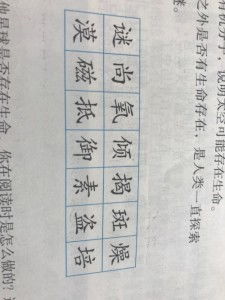 有机分子，说明太空可能存在生命。
之外是否有生命存在，是人类一直探索
谜。
谜 尚 氧 倾 揭 斑 燥
漠 磁 抵 御 素 盗 培
他星球是否存在生命，你在阅读时是怎么做的？